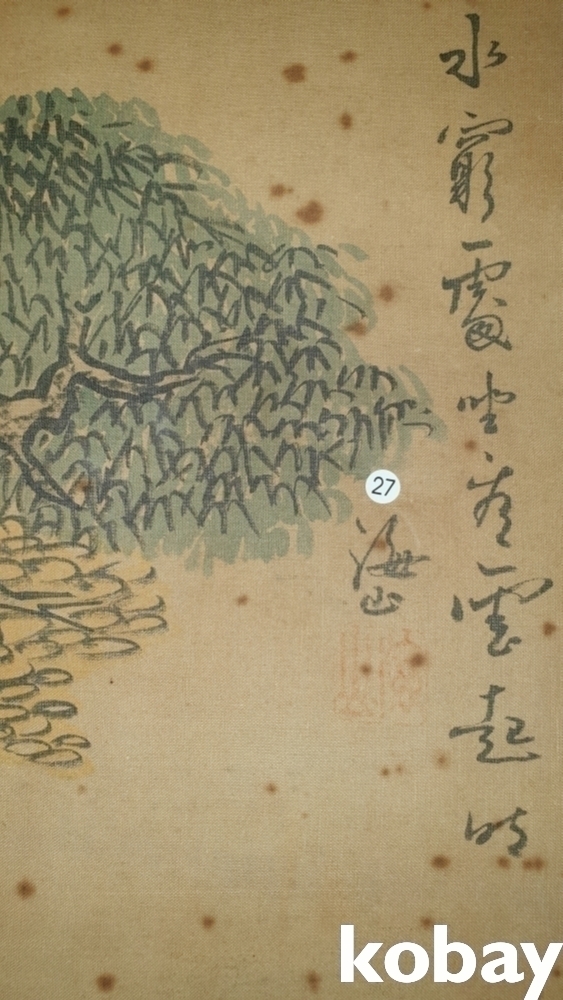 水窮處坐看雲起時
海山
27
kobay